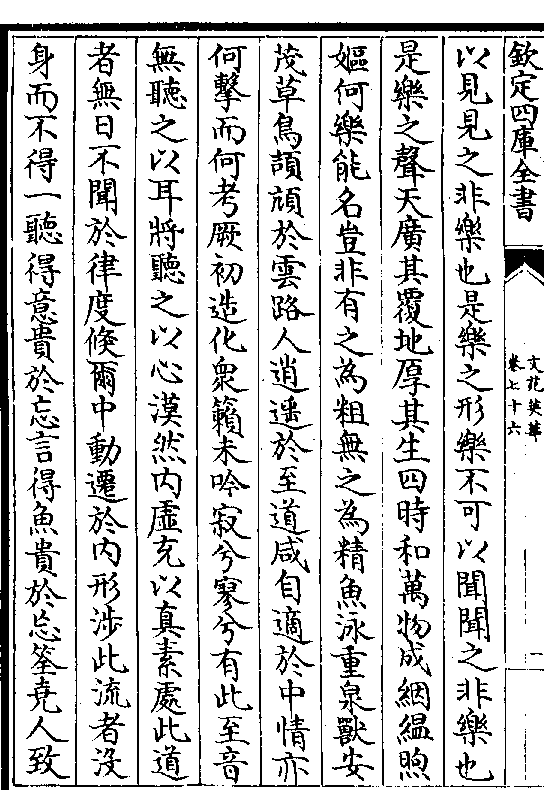 欽定四庫全書
文苑英華
卷七十六
一
以見見之非樂也是樂之形樂不可以聞聞之非樂也
是樂之聲天廣其覆地厚其生四時和萬物成絪縕煦
嫗何樂能名豈非有之為粗無之為精魚泳重泉獸安
茂草鳥頡頏於雲路人逍遥於至道咸自適於中情亦
何擊而何考厥初造化衆籟未吟寂兮寥兮有此至音
無聽之以耳將聽之以心漠然内虚充以真素處此道
者無日不聞於律度倐爾中動遷於内形涉此流者没
身而不得一聽得意貴於忘言得魚貴於忘筌堯人致